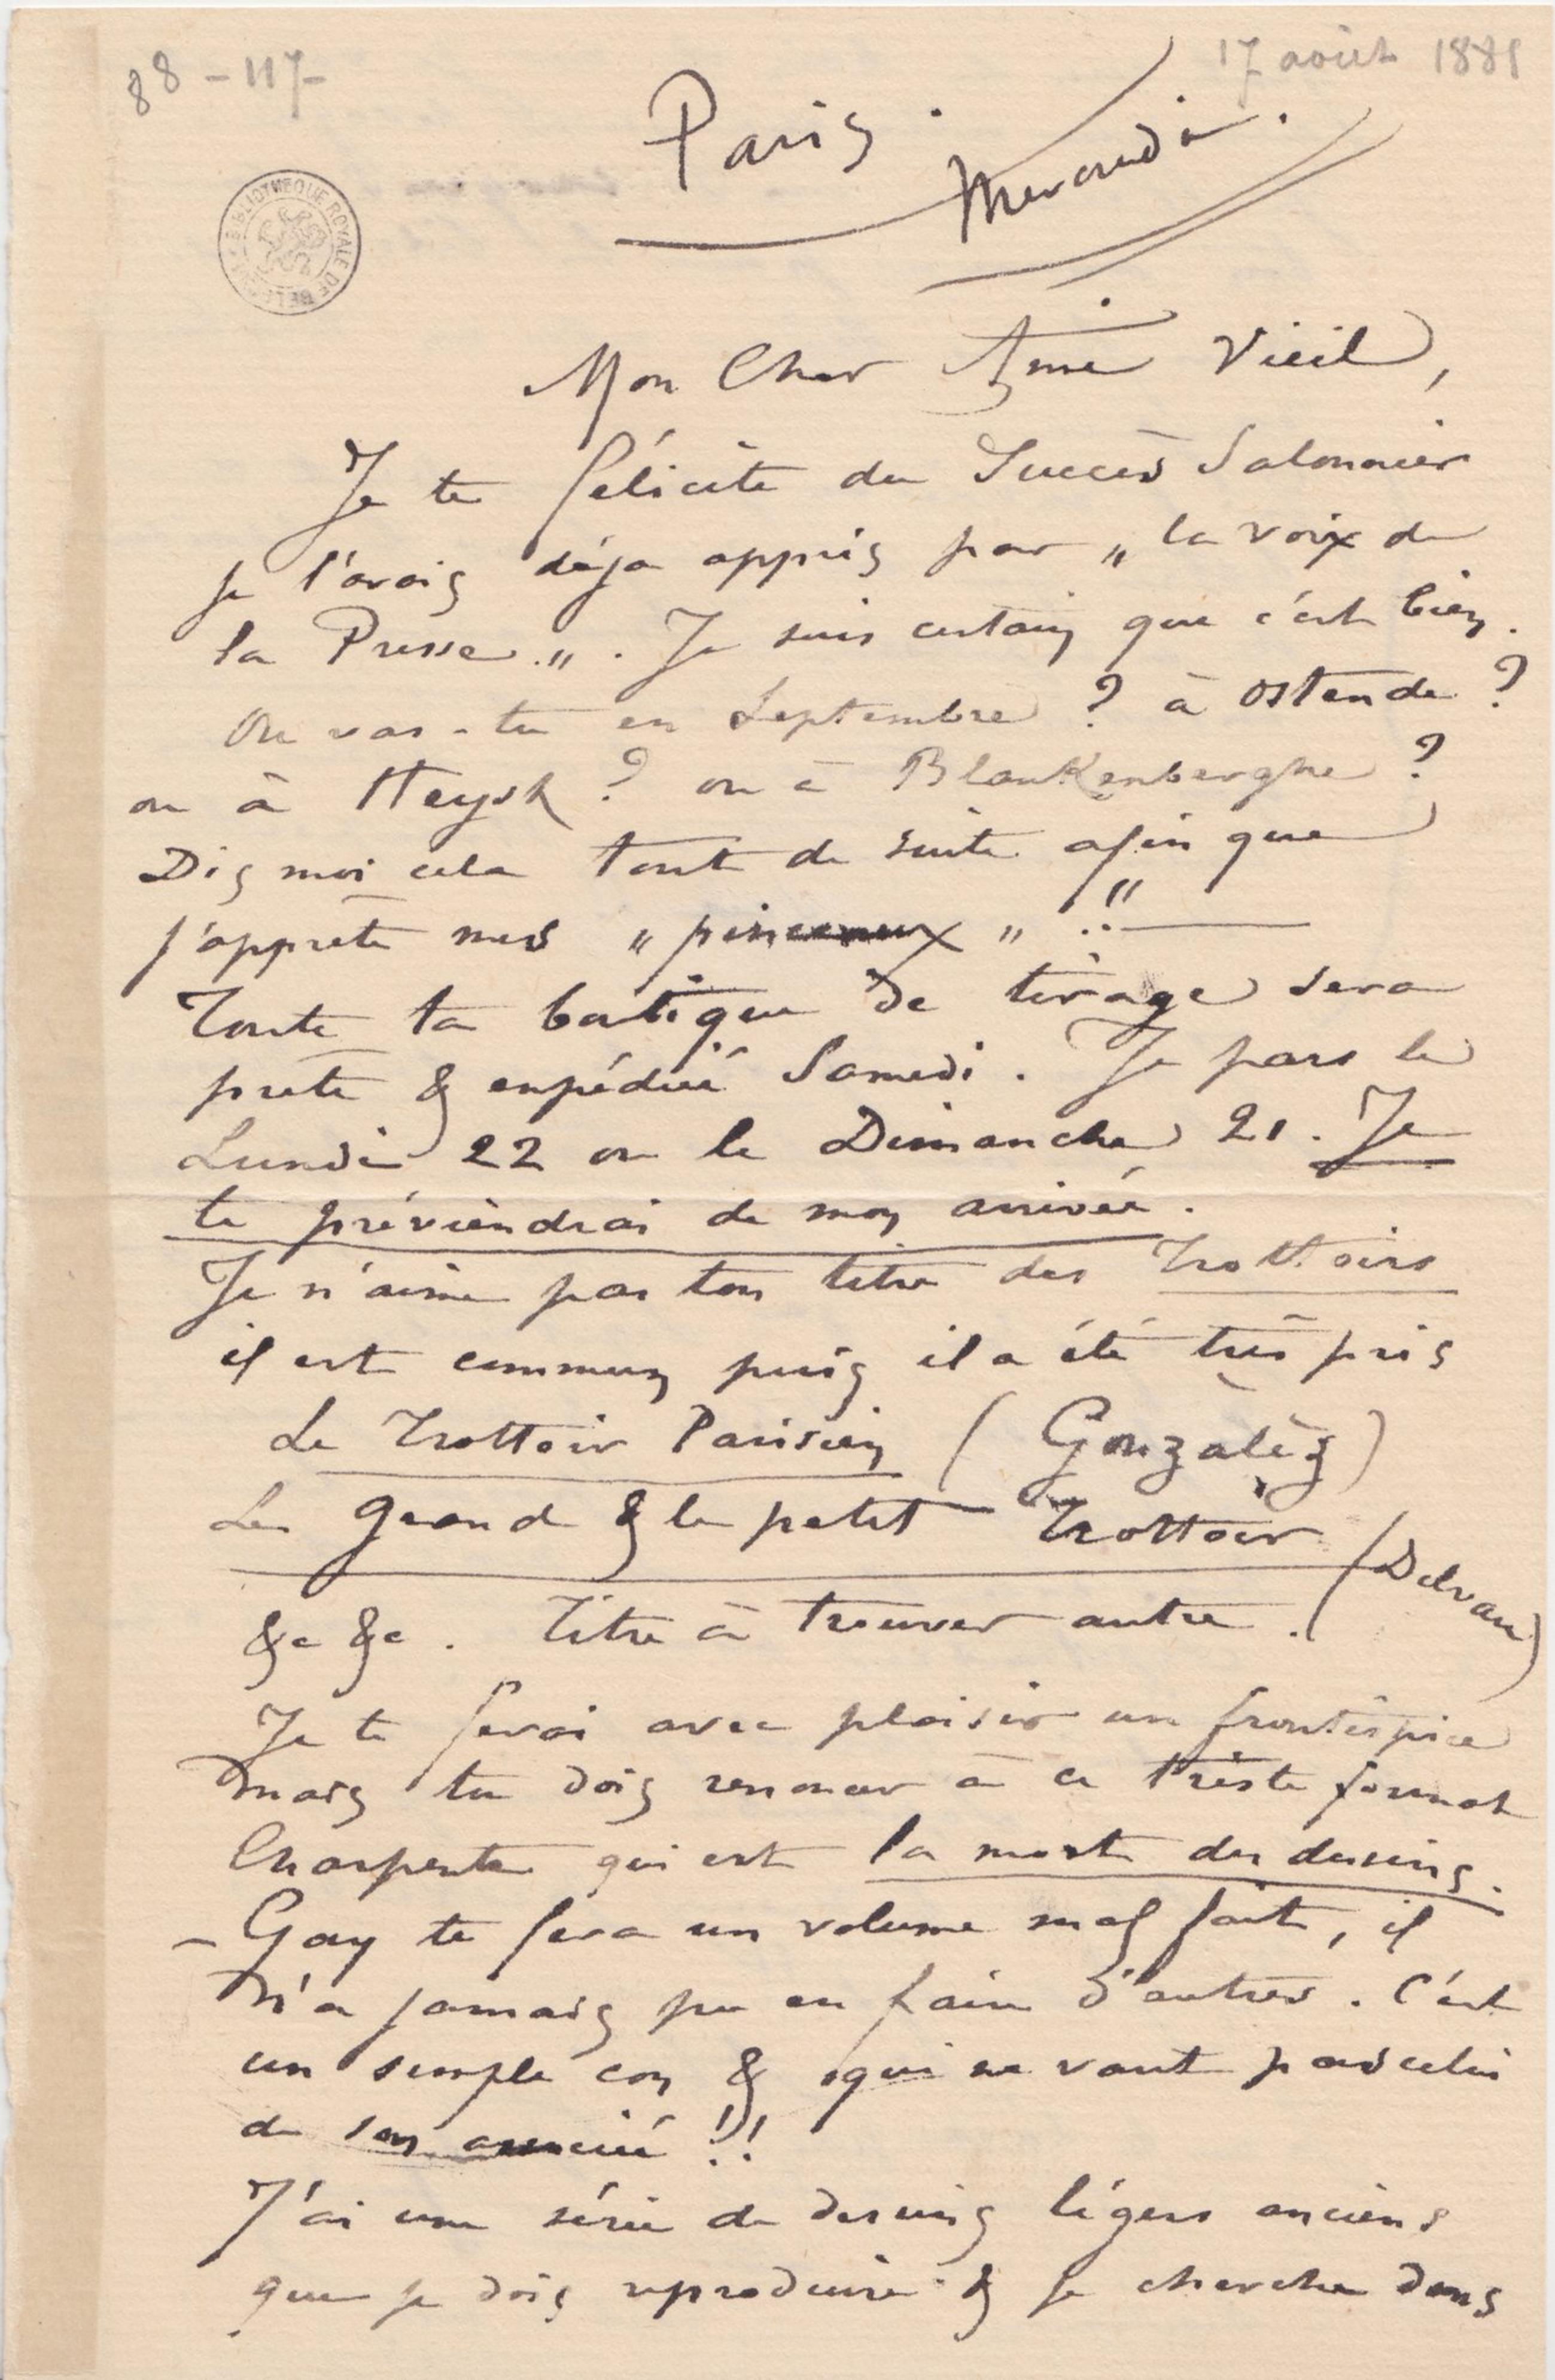 88-117-
17 août 1881
Paris. Mercredi.
BIBLIOTHEQUE ROYALE DE BELGIQUE
Mon Cher Ami Vieil,
Je te félicite du Succès Salonnier
je l'avais déja appris par „ la voix de
la Presse „. Je suis certain que c'est bien.
Ou vas-tu en Septembre ? à Ostende ?
ou à Heyst ? ou à Blankenberghe ?
Dis moi cela tout de suite afin que
j'apprête mes „ pinceaux „ !!
Toute ta boutique de tirage sera
prête & expédiée Samedi. Je pars le
Lundi 22 ou le Dimanche 21. Je
te préviendrai de mon arrivée.
Je n'aime pas ton titre des Trottoirs
il est commun puis il a été très pris
Le Trottoir Parisien (Gonzalès)
Le grand & le petit Trottoir (Delvau)
&c &c. Titre à trouver autre.
Je te ferai avec plaisir un frontispice
mais tu dois renoncer à ce triste format
Charpentier qui est la mort des dessins.
- Gay te fera un volume mal fait, il
n'a jamais pu en faire d'autres. C'est
un simple con & qui ne vaut pas celui
de son associé !!
J'ai une série de dessins légers anciens
que je dois reproduire & je cherche dans